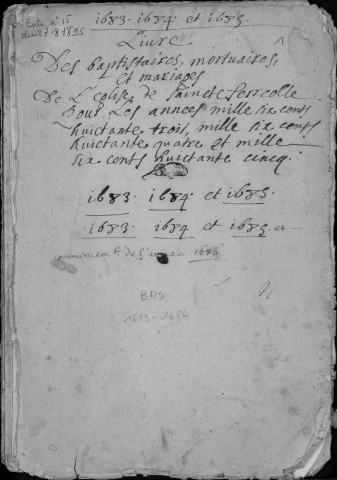 Ente n° 15
du 27-8-1895
1683. 1684 et 1685.
Liure.
Des baptistaires, mortuaires,
et mariages
De L'eglise de Saincte ferreolle
Pour Les annees mille six cents
huictante trois, mille six cents
huictante quatre et mille
six cents huictante cinq.
1683. 1684 et 1685.
1683. 1684 et 1685. et
commencemt. de l'année 1686
BMS
1683-1686